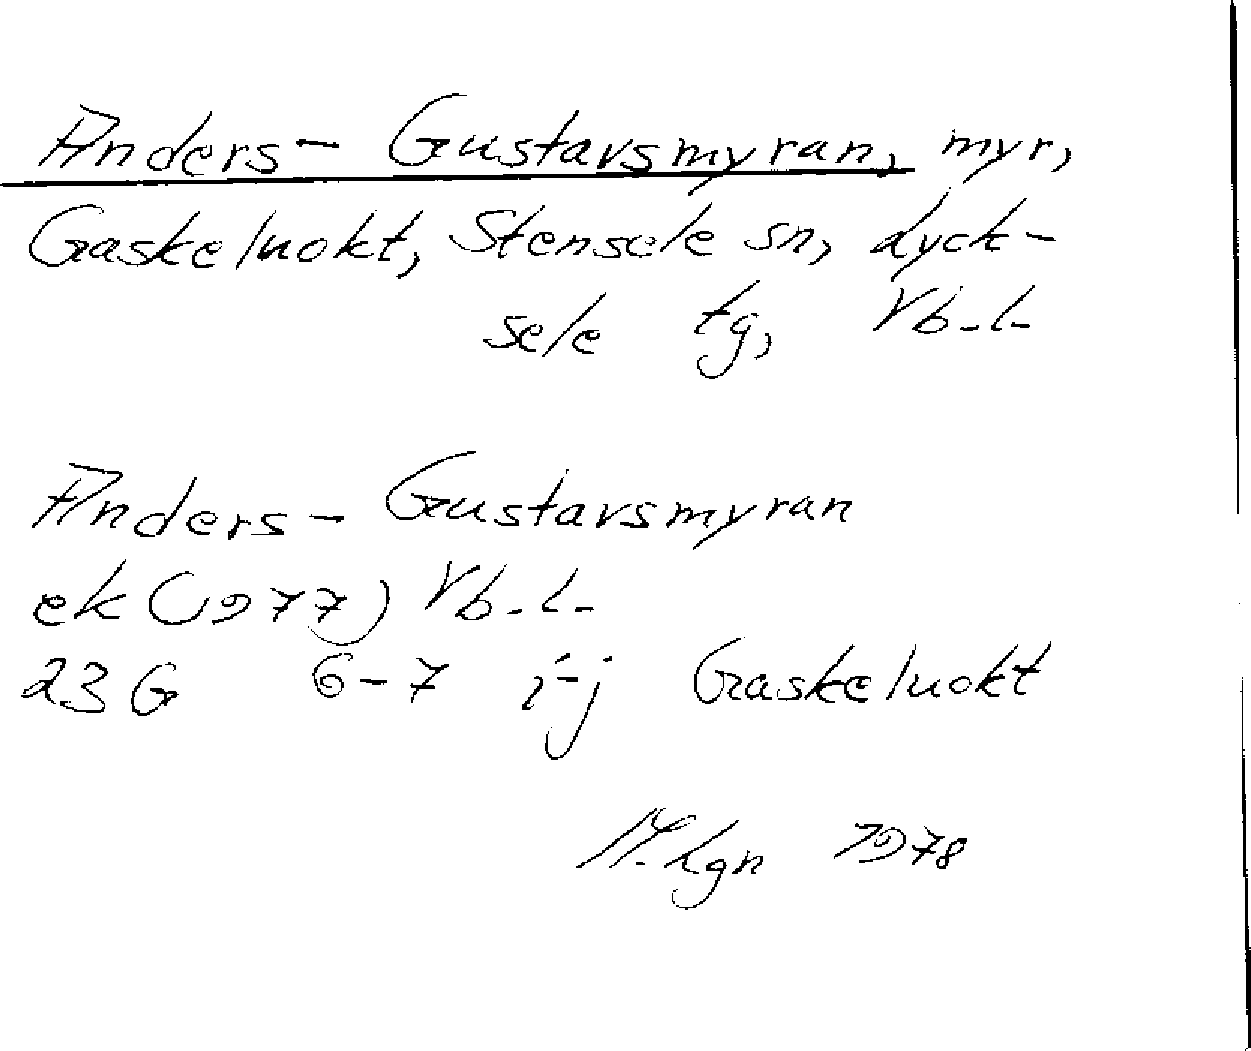 Anders-Gustavsmyran, myr,
Gaskeluokt, Stensele sn, Lyck-
sele tg, Vb.l.
Anders-Gustavsmyran
ek (1977) Vb.l.
23 G 6-7 i-j Gaskeluokt
M.Lgn 1978